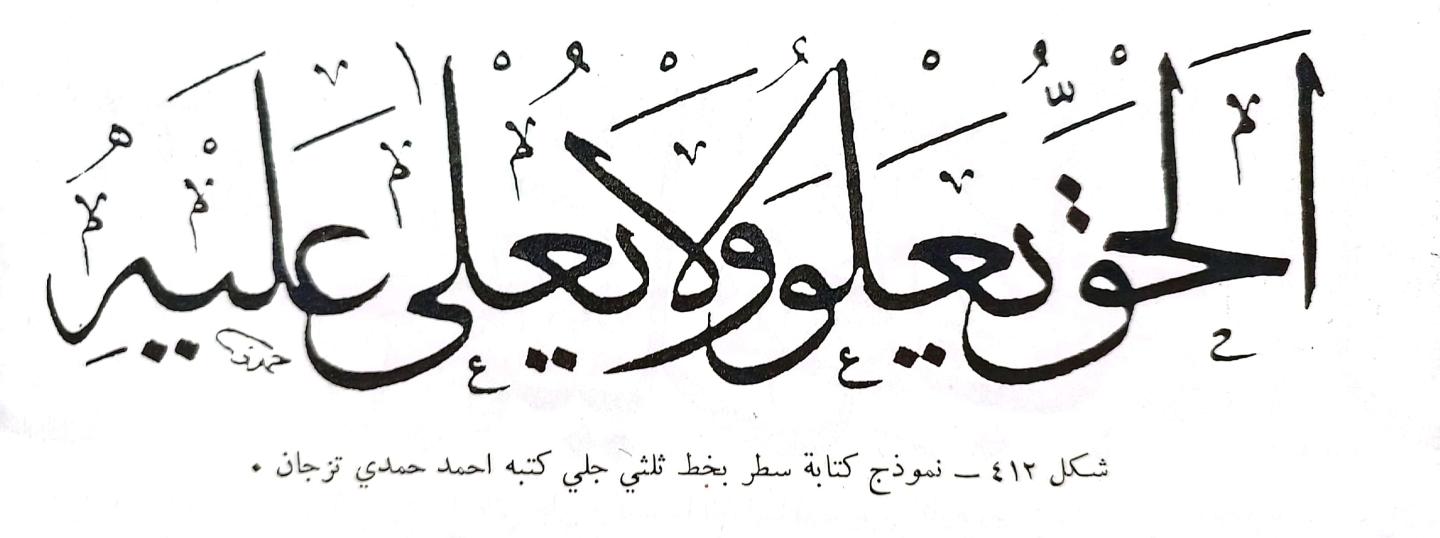 اَلْحَقُّ يَعْلُو وَلَا يُعْلَى عَلَيْهِ
حمدي
شكل ٤١٢ – نموذج كتابة سطر بخط ثلثي جلي كتبه احمد حمدي تزجان .